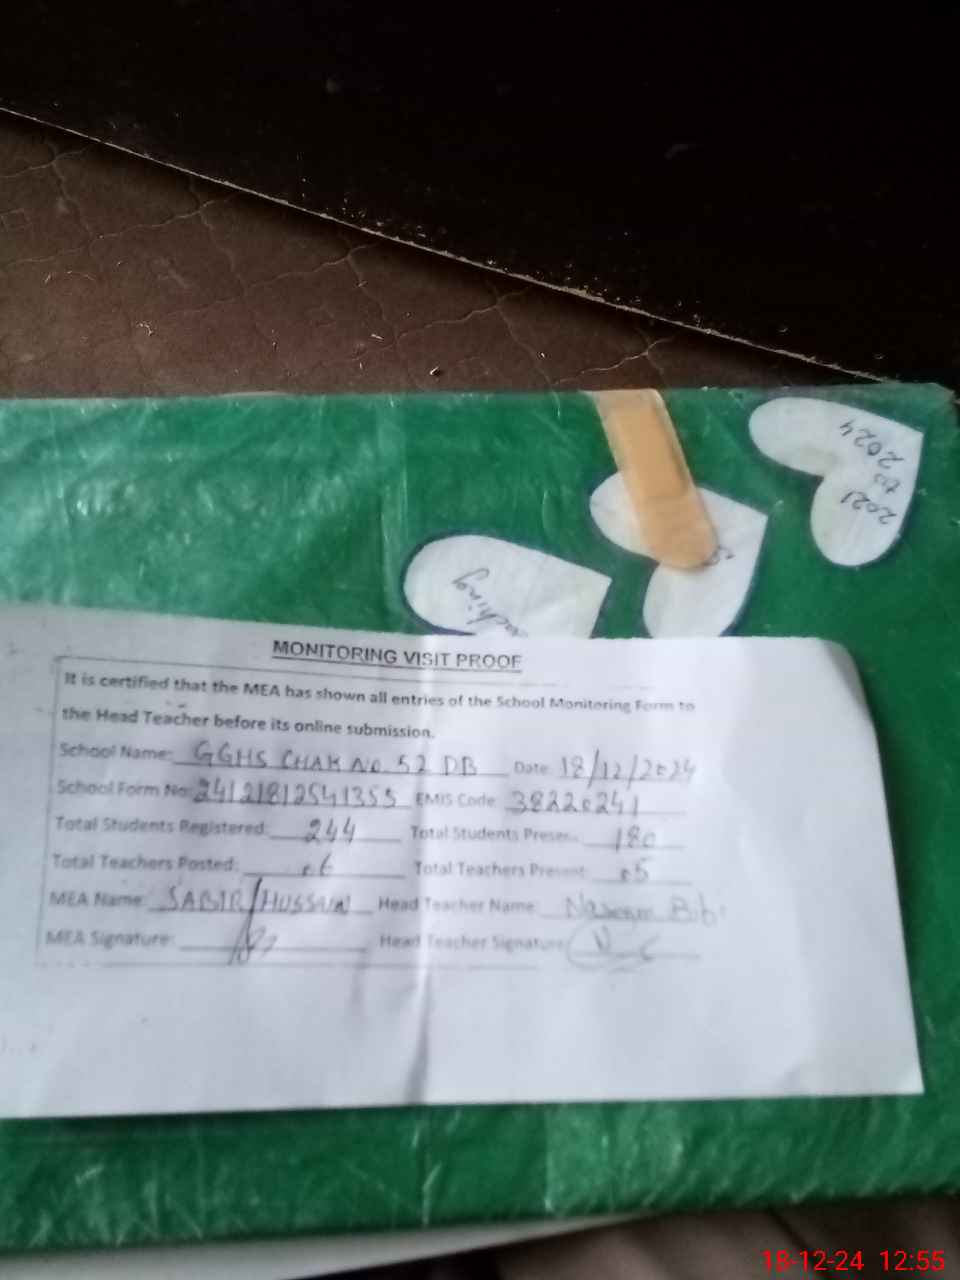 2021
to
2024
aching
MONITORING VISIT PROOF
It is certified that the MEA has shown all entries of the School Monitoring Form to
the Head Teacher before its online submission.
School Name: GGHS CHAK NO. 52 DB Date: 18/12/2024
School Form No: 24121812541355 EMIS Code: 38220241
Total Students Registered: 244 Total Students Presen
180
Total Teachers Posted: 06 Total Teachers Present: 05
MEA Name: SABIR HUSSAIN Head Teacher Name: Naseem Bibi
MEA Signature: Head Teacher Signature:
18-12-24 12:55